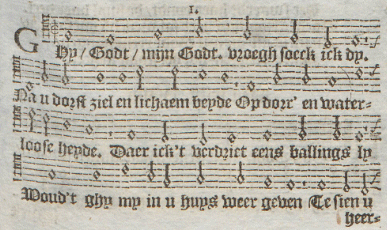 1.
GHy / Godt / mijn Godt. vroegh soeck ick dy.
Na u dorst ziel en lichaem beyde Op dorr' en water-
loose heyde. Daer ick't verdriet eens ballings ly
Woud't ghy my in u huys weer geven Te sien u
heer-